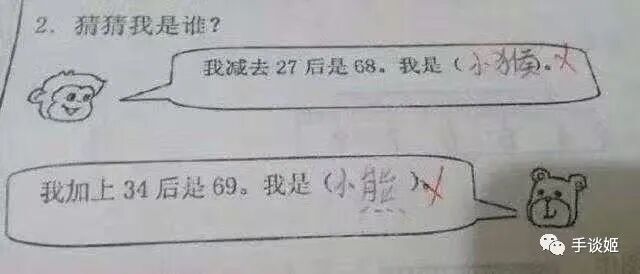 2. 猜猜我是谁？
我减去 27 后是 68。我是（小猴）。
我加上 34 后是 69。我是（小熊）。
手谈姬